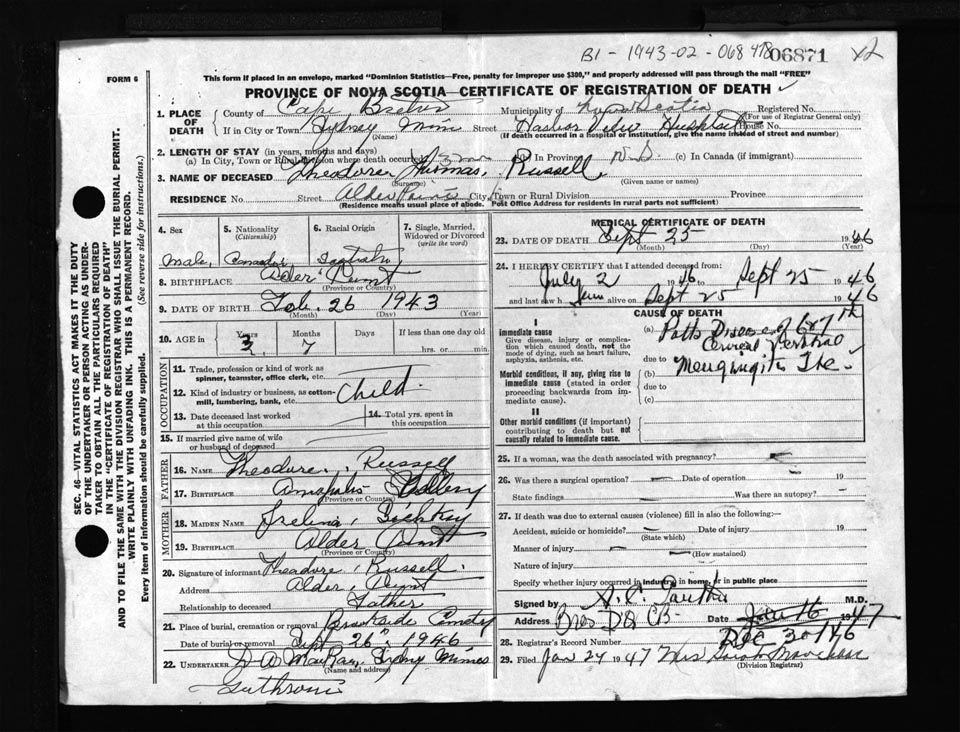 B1 - 1943-02 - 068478
06871
x2
FORM 6
This form if placed in an envelope, marked "Dominion Statistics—Free, penalty for improper use $300," and properly addressed will pass through the mail "FREE"
PROVINCE OF NOVA SCOTIA—CERTIFICATE OF REGISTRATION OF DEATH
1. PLACE OF DEATH
County of Cape Breton Municipality of Nova Scotia Registered No.
(For use of Registrar General only)
If in City or Town Sydney Mines Street Harbor View Hospital House No.
(Name) (If death occurred in a hospital or institution, give the name instead of street and number)
2. LENGTH OF STAY (in years, months and days)
(a) In City, Town or Rural Division where death occurred 3 m (b) In Province N.S. (c) In Canada (if immigrant)
3. NAME OF DECEASED Theodore Thomas Russell
(Surname) (Given name or names)
RESIDENCE No. Street Alder Point City, Town or Rural Division Province
(Residence means usual place of abode. Post Office Address for residents in rural parts not sufficient)
4. Sex
5. Nationality (Citizenship)
6. Racial Origin
7. Single, Married, Widowed or Divorced (write the word)
Male
8. BIRTHPLACE Alder Point
(Province or Country)
9. DATE OF BIRTH Feb. 26 1943
(Month) (Day) (Year)
10. AGE in Years Months Days If less than one day old
3 7 hrs. or min.
OCCUPATION
11. Trade, profession or kind of work as spinner, teamster, office clerk, etc.
12. Kind of industry or business, as cotton-mill, lumbering, bank, etc. Child
13. Date deceased last worked at this occupation
14. Total yrs. spent in this occupation
15. If married give name of wife or husband of deceased
FATHER
16. NAME Theodore Russell
17. BIRTHPLACE
(Province or Country)
MOTHER
18. MAIDEN NAME
19. BIRTHPLACE Alder Point
(Province or Country)
20. Signature of informant Theodore Russell
Address Alder Point
Relationship to deceased Father
21. Place of burial, cremation or removal Brookside Cemetery
Date of burial or removal Sept 26 1946
22. UNDERTAKER D A MacKay, Sydney Mines
(Name and address)
MEDICAL CERTIFICATE OF DEATH
23. DATE OF DEATH Sept 25 1946
(Month) (Day) (Year)
24. I HEREBY CERTIFY that I attended deceased from:
July 2 1946 to Sept 25 1946
and last saw him alive on Sept 25 1946
CAUSE OF DEATH
I
Immediate cause
Give disease, injury or complication which caused death, not the mode of dying, such as heart failure, asphyxia, asthenia, etc.
(a) Potts Disease of 6 & 7th
Cervical Vertebrae
due to
Morbid conditions, if any, giving rise to immediate cause (stated in order proceeding backwards from immediate cause).
(b) Meningitis Tbc.
due to
(c)
II
Other morbid conditions (if important) contributing to death but not causally related to immediate cause.
25. If a woman, was the death associated with pregnancy?
26. Was there a surgical operation? Date of operation 19
State findings Was there an autopsy?
27. If death was due to external causes (violence) fill in also the following:—
Accident, suicide or homicide? Date of injury 19
(State which)
Manner of injury
(How sustained)
Nature of injury
Specify whether injury occurred in industry, in home, or in public place
Signed by M.D.
Address Date 1947
Dec 30/46
28. Registrar's Record Number
29. Filed Jan 24 1947 Mrs Sarah
(Division Registrar)
SEC. 46—VITAL STATISTICS ACT MAKES IT THE DUTY OF THE UNDERTAKER OR PERSON ACTING AS UNDERTAKER TO OBTAIN ALL THE PARTICULARS REQUIRED IN THE "CERTIFICATE OF REGISTRATION OF DEATH" AND TO FILE THE SAME WITH THE DIVISION REGISTRAR WHO SHALL ISSUE THE BURIAL PERMIT.
WRITE PLAINLY WITH UNFADING INK. THIS IS A PERMANENT RECORD.
Every item of information should be carefully supplied. (See reverse side for instructions.)